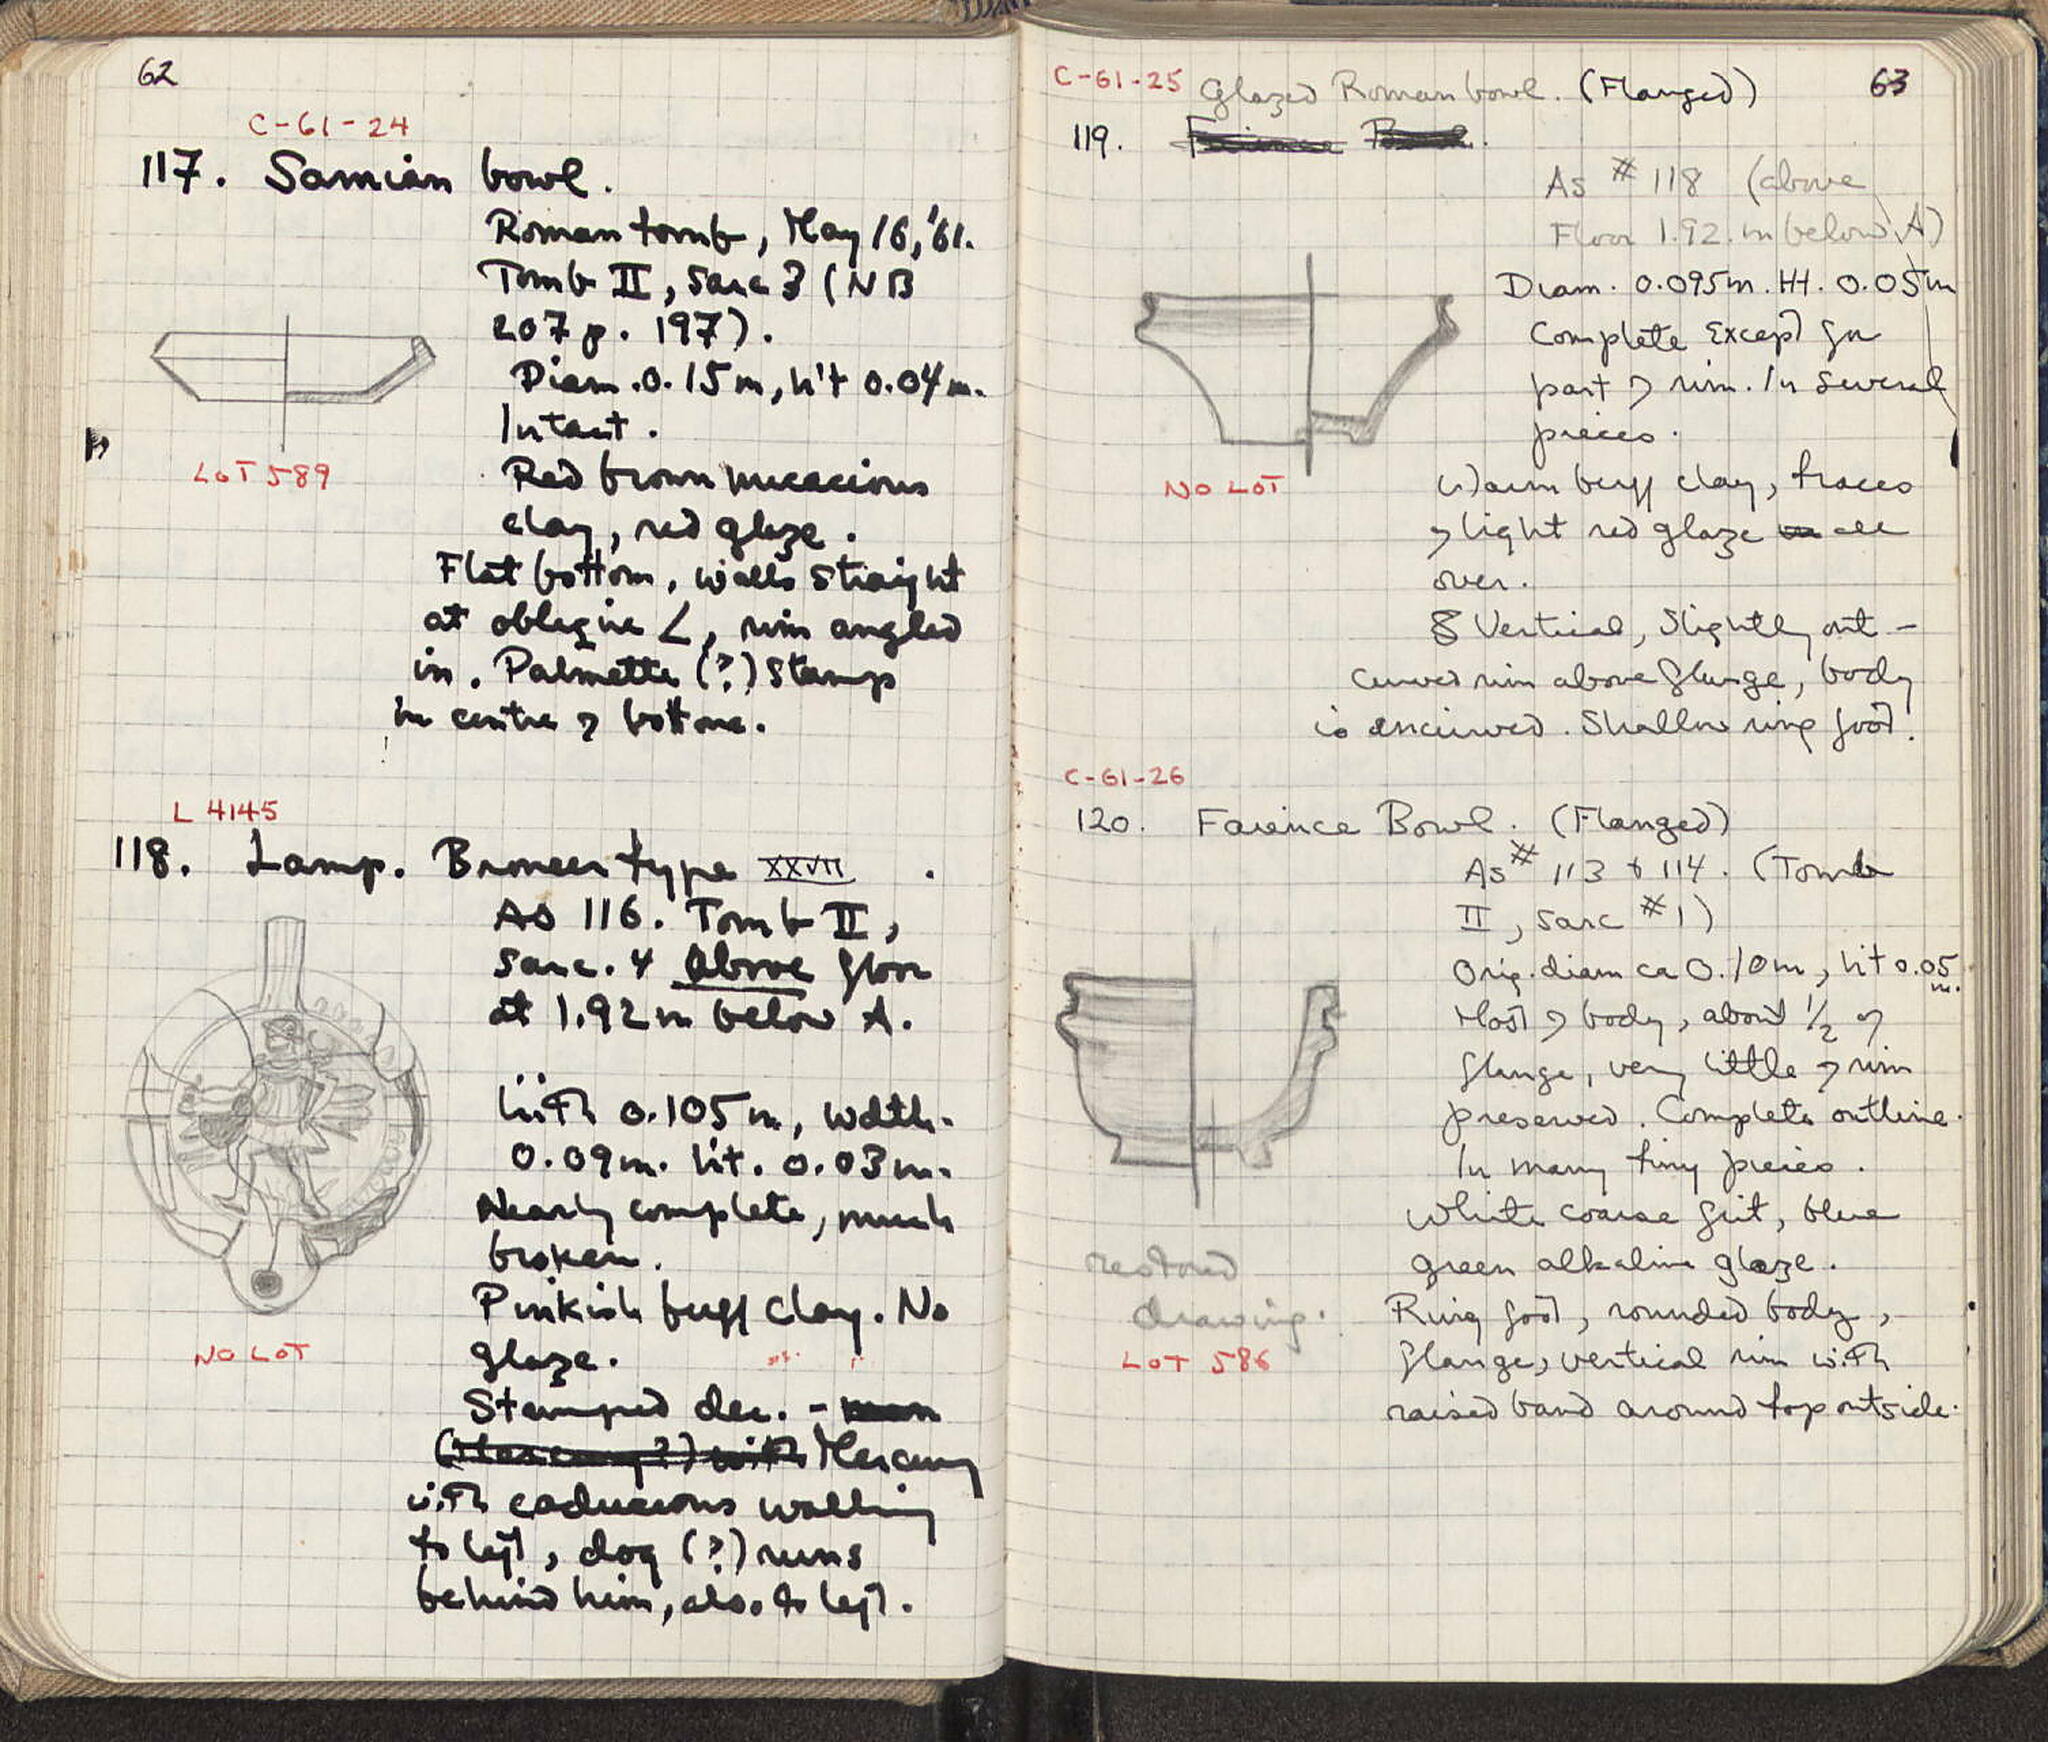 62
C-61-24
117. Samian bowl.
Roman tomb, May 16, '61.
Tomb II, sarc 3 (NB
207 p. 197).
Diam. 0.15m, h't 0.04m.
Intact.
LOT 589
Red brown micacious
clay, red glaze.
Flat bottom, walls straight
at obleqie ∠, rim angled
in. Palmette (?) stamp
in centre of bottom.
L 4145
118. Lamp. Broneer type XXVII .
As 116. Tomb II,
sarc. 4 above floor
at 1.92m below A.
l'i'th 0.105m, wdth.
0.09m. h't. 0.03m.
Nearly complete, much
broken.
Pinkish buff clay. No
glaze.
NO LOT
Stamped dec. - man
(Mercury?) with Mercury
with caduceous walking
to left, dog (?) runs
behind him, also to left.
C-61-25 Glazed Roman bowl. (Flanged) 63
119. Faience Bowl.
As # 118 (above
Floor 1.92.m below A)
Diam. 0.095m. Ht. 0.05m
Complete Except for
part of rim. In several
pieces.
NO LOT
Warm buff clay, traces
of light red glaze all
over.
Vertical, slightly out-
curved rim above flange, body
is incurved. Shallow ring foot.
C-61-26
120. Faience Bowl. (Flanged)
As # 113 & 114. (Tomb
II, sarc #1)
Orig. diam ca 0.10m, h't 0.05
m.
Most of body, about 1/2 of
flange, very little of rim
preserved. Complete outline.
In many tiny pieces.
White coarse grit, blue
green alkaline glaze.
restored
drawing.
LOT 586
Ring foot, rounded body,
flange, vertical rim with
raised band around top outside.